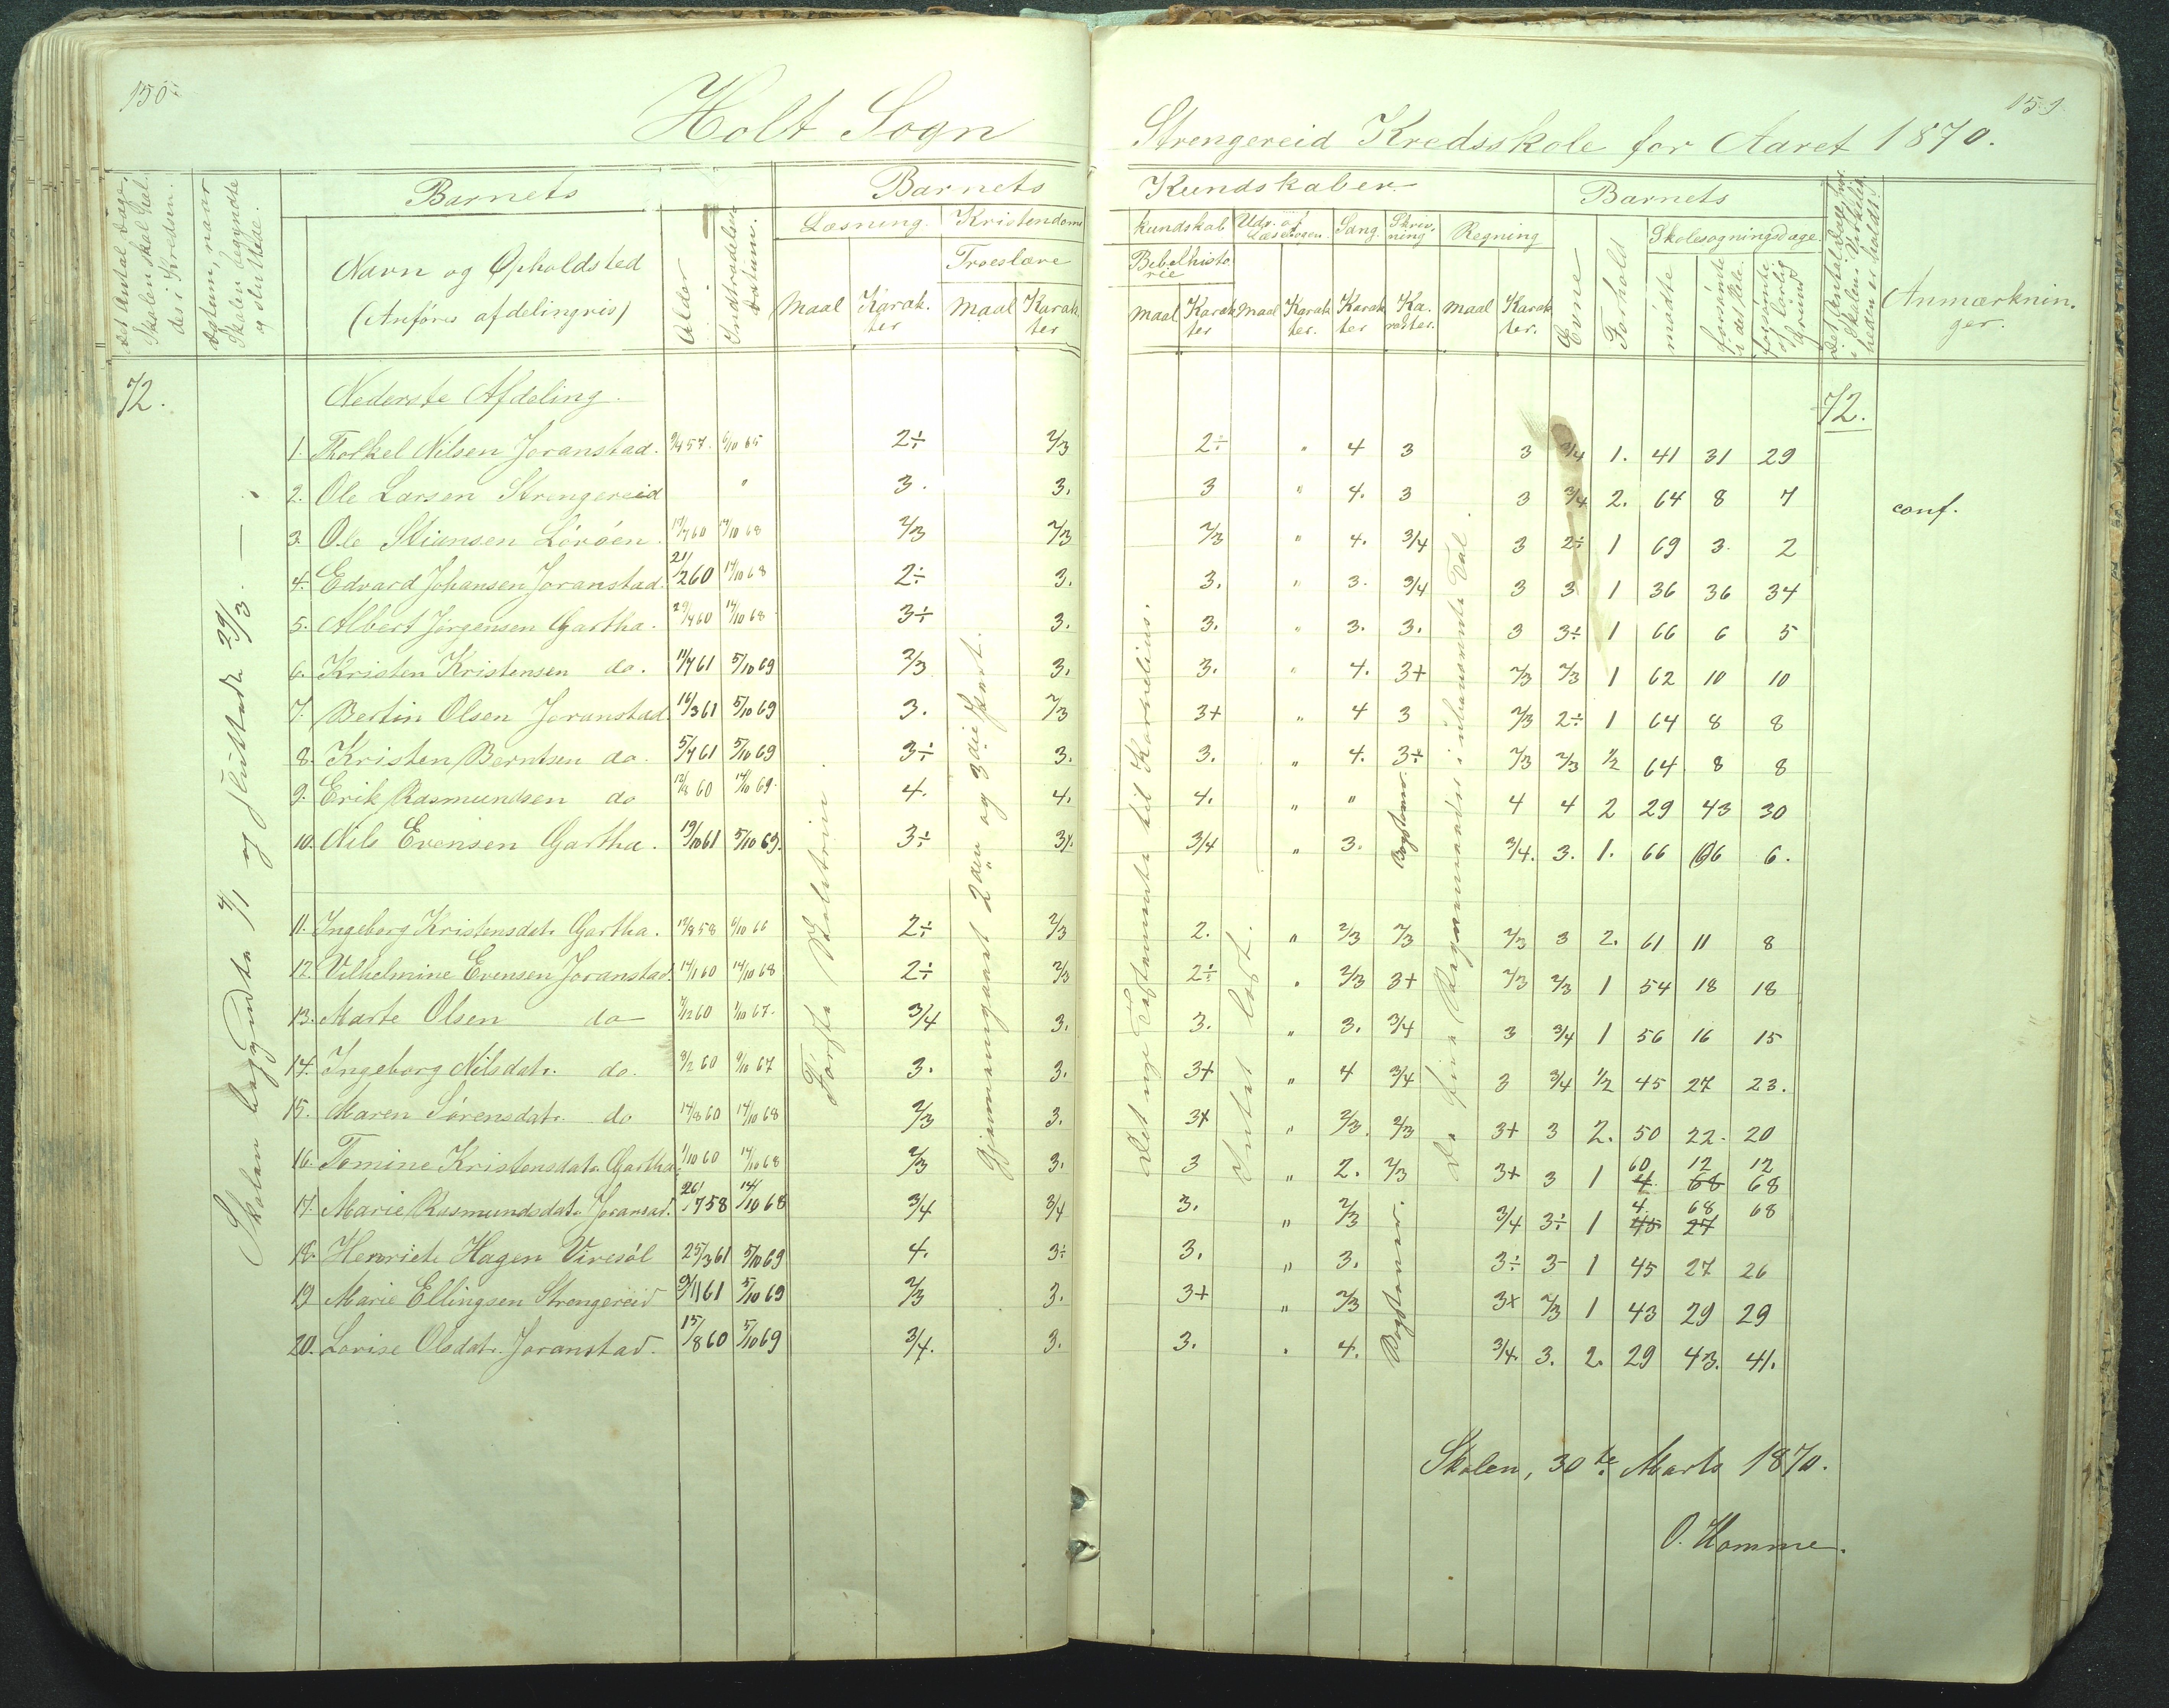 150.
Holt Sogn
Det Antal Dage, Skolen skal holdes i Kredsen.
Datum, naar Skolen begyndte og sluttede.
Barnets
Navn og Opholdsted
(Anføres afdelingvis)
Alder
Indtrædelses datum.
Barnets
Læsning. Kristendoms
Troeslære
Maal Karakter Maal Karakter
72.
Skolen begyndte 4/1 og sluttede 29/3. —
Nederste Afdeling.
1. Tholkel Nilsen Joranstad. 9/4 57. 6/10 65 2÷ 2/3
2. Ole Larsen Strengereid " 3. 3.
3. Ole Stiansen Lövöen. 17/7 60 14/10 68 2/3 2/3
4. Edvard Johansen Joranstad. 21/2 60 14/10 68 2÷ 3.
5. Albert Jørgensen Gartha. 29/4 60 14/10 68 3÷ 3.
6. Kristen Kristensen do. 11/7 61 5/10 69 2/3 3.
7. Bertin Olsen Joranstad. 16/3 61 5/10 69 3. 2/3
8. Kristen Berntsen do. 5/4 61 5/10 69 3÷ 3.
9. Erik Rasmundsen do 12/8 60 14/10 69. 4. 4.
10. Nils Evensen Gartha. 19/10 61 5/10 69. 3÷ 3+.
11. Ingeborg Kristensdatr. Gartha. 12/8 58 6/10 66 2÷ 2/3
12. Vilhelmine Evensen Joranstad. 14/1 60 14/10 68 2÷ 2/3
13. Marte Olsen do 7/12 60 1/10 67. 3/4 3.
14. Ingeborg Nilsdatr. do. 9/2 60 9/10 67 3. 3.
15. Maren Sørensdatr. do 14/8 60 14/10 68 2/3 3.
16. Tomine Kristensdatr. Gartha. 1/10 60 14/10 68 2/3 3.
17. Marie Rasmundsdatr. Joranstad. 26/7 58 14/10 68 3/4 3/4
18. Henriete Hagen Viresøl 25/3 61 5/10 69 4. 3÷
19 Marie Ellingsen Strengereid 9/11 61 5/10 69 2/3 3.
20. Lovise Olsdatr. Joranstad. 15/8 60 5/10 69 3/4. 3.
Første
Gjennemgaaet 2den og 3die Part.
151.
Strengereid Kredsskole for Aaret 1870.
Kundskaber
Barnets
kundskab Udv. af Læsebogen. Sang. Skrivning Regning
Bibelhistorie
Maal Karakter Maal Karakter. Karakter Karakter. Maal Karakter.
Evne
Forhold
Skolesøgningsdage.
mødte
forsømte i det Hele.
forsømte af lovlig Grund
Det Antal Dage, hvor i Skolen i Virkeligheden er holdt.
Anmærkninger.
72.
2÷ " 4 3 3 3/4 1. 41 31 29
3 " 4. 3 3 3/4 2. 64 8 7 conf.
2/3 " 4. 3/4 3 2÷ 1 69 3. 2
3. " 3. 3/4 3 3 1 36 36 34
3. " 3. 3. 3 3÷ 1 66 6 5
3. " 4. 3+ 2/3 2/3 1 62 10 10
3+ " 4 3 2/3 2÷ 1 64 8 8
3. " 4. 3÷ 2/3 2/3 1/2 64 8 8
4. " " 4 4 2 29 43 30
3/4 " 3. Bogstaver. 3/4. 3. 1. 66 6 6.
2. " 2/3 2/3 2/3 3 2. 61 11 8
2÷ " 2/3 3+ 2/3 2/3 1 54 18 18
3. " 3. 3/4 3 3/4 1 56 16 15
3+ " 4 3/4 3 3/4 1/2 45 27 23.
3+ " 2/3. 2/3 3+ 3 2. 50 22. 20
3 " 2. 2/3 3+ 3 1 60 12 12
4. 68 68
3. " 2/3 3/4 3÷ 1 4. 68 68
45 27
3. " 3. 3÷ 3- 1 45 27 26
3+ " 2/3 3+ 2/3 1 43 29 29
3. " 4. Bogstaver. 3/4. 3. 2. 29 43. 41.
Det nye Testamente til Kornelius.
Intet læst.
De fire Regnemaader i ubenævnte Tal.
Skolen, 30te Marts 1870.
O. Homme.